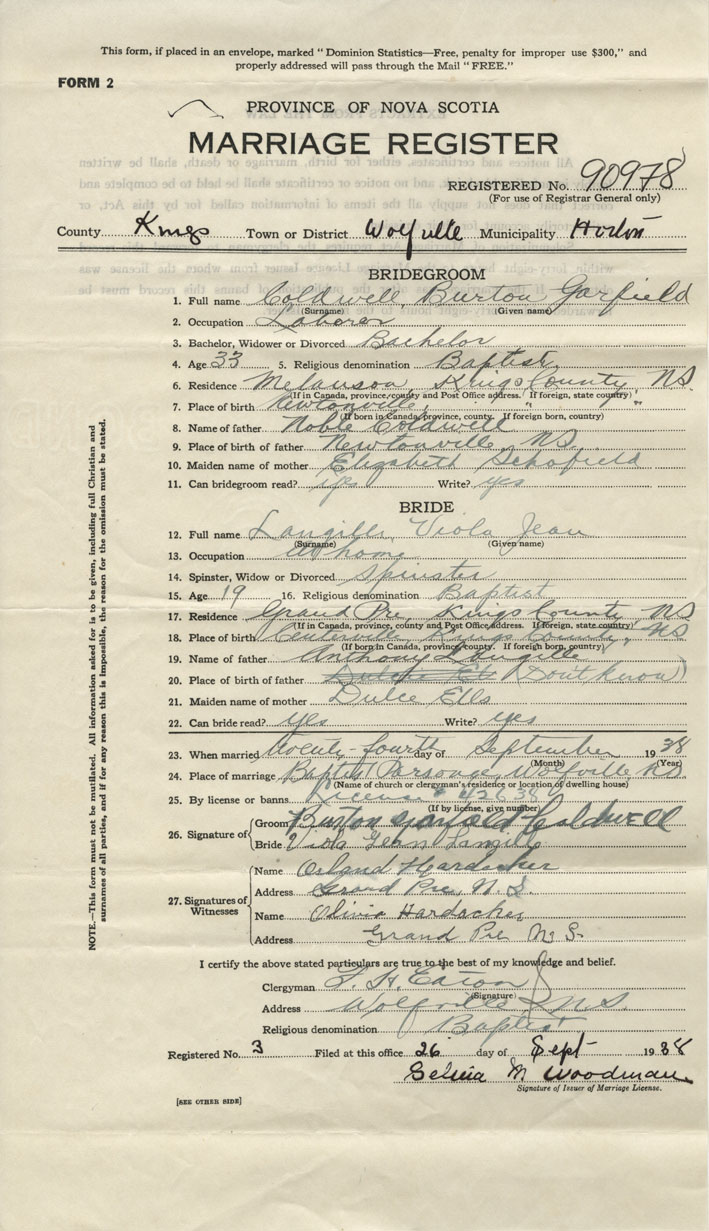 This form, if placed in an envelope, marked "Dominion Statistics—Free, penalty for improper use $300," and
properly addressed will pass through the Mail "FREE."
FORM 2
PROVINCE OF NOVA SCOTIA
MARRIAGE REGISTER
REGISTERED No. 90978
(For use of Registrar General only)
County Kings Town or District Wolfville Municipality Horton
BRIDEGROOM
1. Full name Coldwell, Burton Garfield
(Surname) (Given name)
2. Occupation Laborer
3. Bachelor, Widower or Divorced Bachelor
4. Age 33 5. Religious denomination Baptist
6. Residence Melanson, Kings County, NS.
(If in Canada, province, county and Post Office address. If foreign, state country)
7. Place of birth Newtonville, " "
(If born in Canada, province, county. If foreign born, country)
8. Name of father Noble Coldwell
9. Place of birth of father Newtonville NS.
10. Maiden name of mother Elizabeth Schofield
11. Can bridegroom read? yes Write? yes
BRIDE
12. Full name Langille, Viola Jean
(Surname) (Given name)
13. Occupation At home
14. Spinster, Widow or Divorced Spinster
15. Age 19 16. Religious denomination Baptist
17. Residence Grand Pre, Kings County, NS
(If in Canada, province, county and Post Office address. If foreign, state country)
18. Place of birth Centerville, Kings County, NS
(If born in Canada, province, county. If foreign born, country)
19. Name of father Anthony Langille
20. Place of birth of father (Don't know)
21. Maiden name of mother Dulce Ells
22. Can bride read? yes Write? yes
23. When married twenty-fourth day of September 1938
(Month) (Year)
24. Place of marriage Baptist Parsonage, Wolfville NS
(Name of church or clergyman's residence or location of dwelling house)
25. By license or banns License #
(If by license, give number)
26. Signature of
Groom Burton Garfield Coldwell
Bride Viola Jean Langille
27. Signatures of Witnesses
Name Orland Hardacker
Address Grand Pre, N.S.
Name Olivia Hardacker
Address Grand Pre N.S.
I certify the above stated particulars are true to the best of my knowledge and belief.
Clergyman F. H. Eaton
(Signature)
Address Wolfville N.S.
Religious denomination Baptist
Registered No. 3 Filed at this office 26 day of Sept 1938
Selina M Woodman
Signature of Issuer of Marriage License.
[SEE OTHER SIDE]
NOTE.—This form must not be mutilated. All information asked for is to be given, including full Christian and
surnames of all parties, and if for any reason this is impossible, the reason for the omission must be stated.